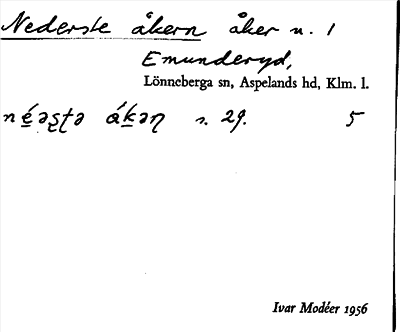 Nederste åkern åker n. 1
Emunderyd,
Lönneberga sn, Aspelands hd, Klm. l.
s. 29. 5
Ivar Modéer 1956